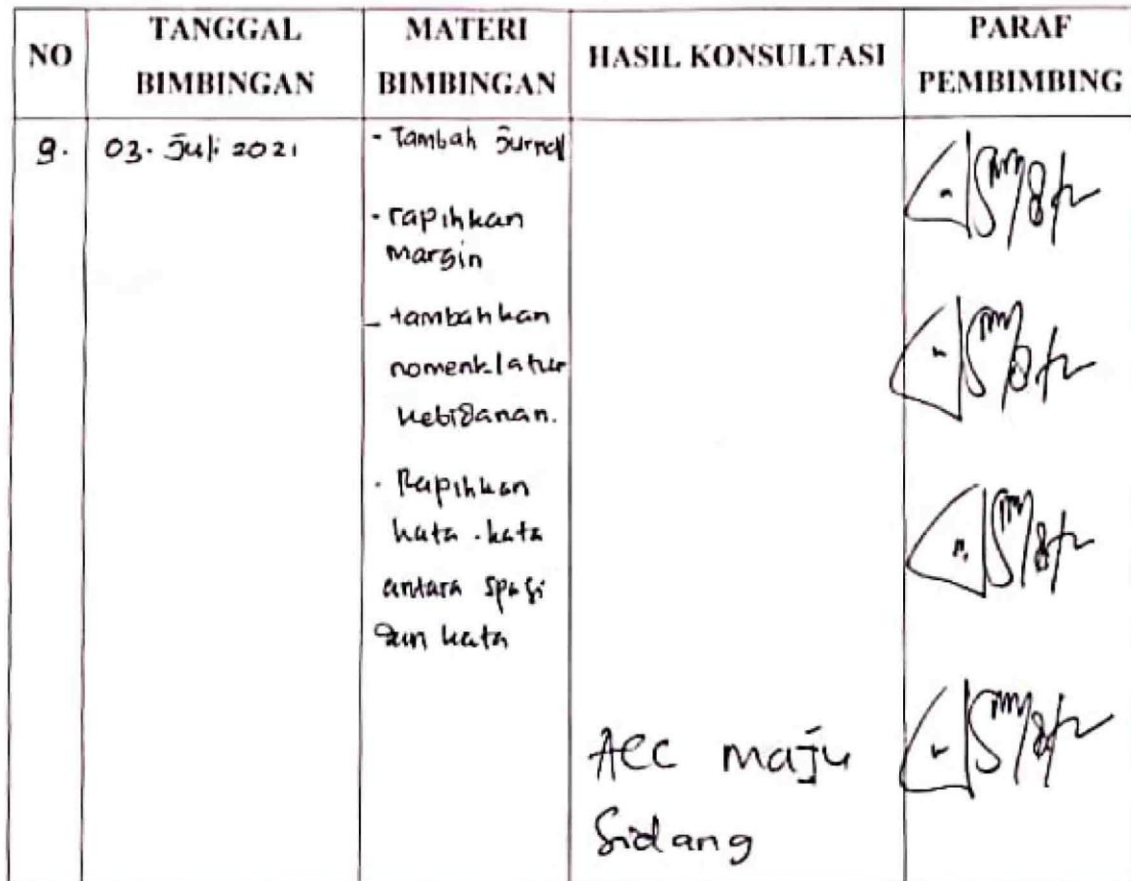 NO
TANGGAL
BIMBINGAN
MATERI
BIMBINGAN
HASIL KONSULTASI
PARAF
PEMBIMBING
9.
03. Juli 2021
- Tambah Jurnal
- rapihkan
margin
- tambahkan
nomenklatur
kebidanan.
- Rapihkan
kata-kata
antara spasi
dan kata
ACC maju
Sidang